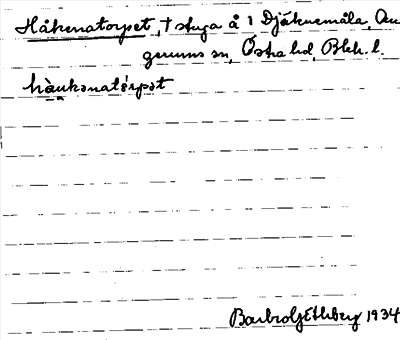 Håkenatorpet, † stuga å 1 Djäknemåla, Au
gerums sn, Östra hd, Blek. l.
hàukənatórpət
1934